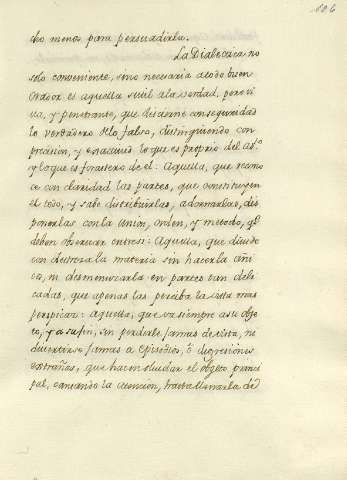 106
cho menos para persuadirla.
La Dialectica no
solo conveniente, sino necesaria atodo buen
Orador es aquella sutil ala verdad, pero vi
va, y penetrante, que discierne con seguridad
lo verdadero delo falso, distinguiendo con
precision, y exactitud lo que es proprio del as.to
y lo que es forastero de el: Aquella, que recono
ce con claridad las partes, que constituyen
el todo, y sabe distribuirlas, adornarlas, dis
ponerlas con la Union, orden, y metodo, q.e
deben observar entresi: Aquella, que divide
con destreza la materia sin hacerla añi
cos, ni desmenuzarla en partes tan deli
cadas, que apenas las perciba la vista mas
perspicaz: aquella, que va siempre asu obje
to, y a su fin, sin perderle jamas de vista, ni
divertirse jamas a Episodios, ò digresiones
extrañas, que hacen olvidar el objeto princi
pal, cansando la atencion, hasta llenarla de